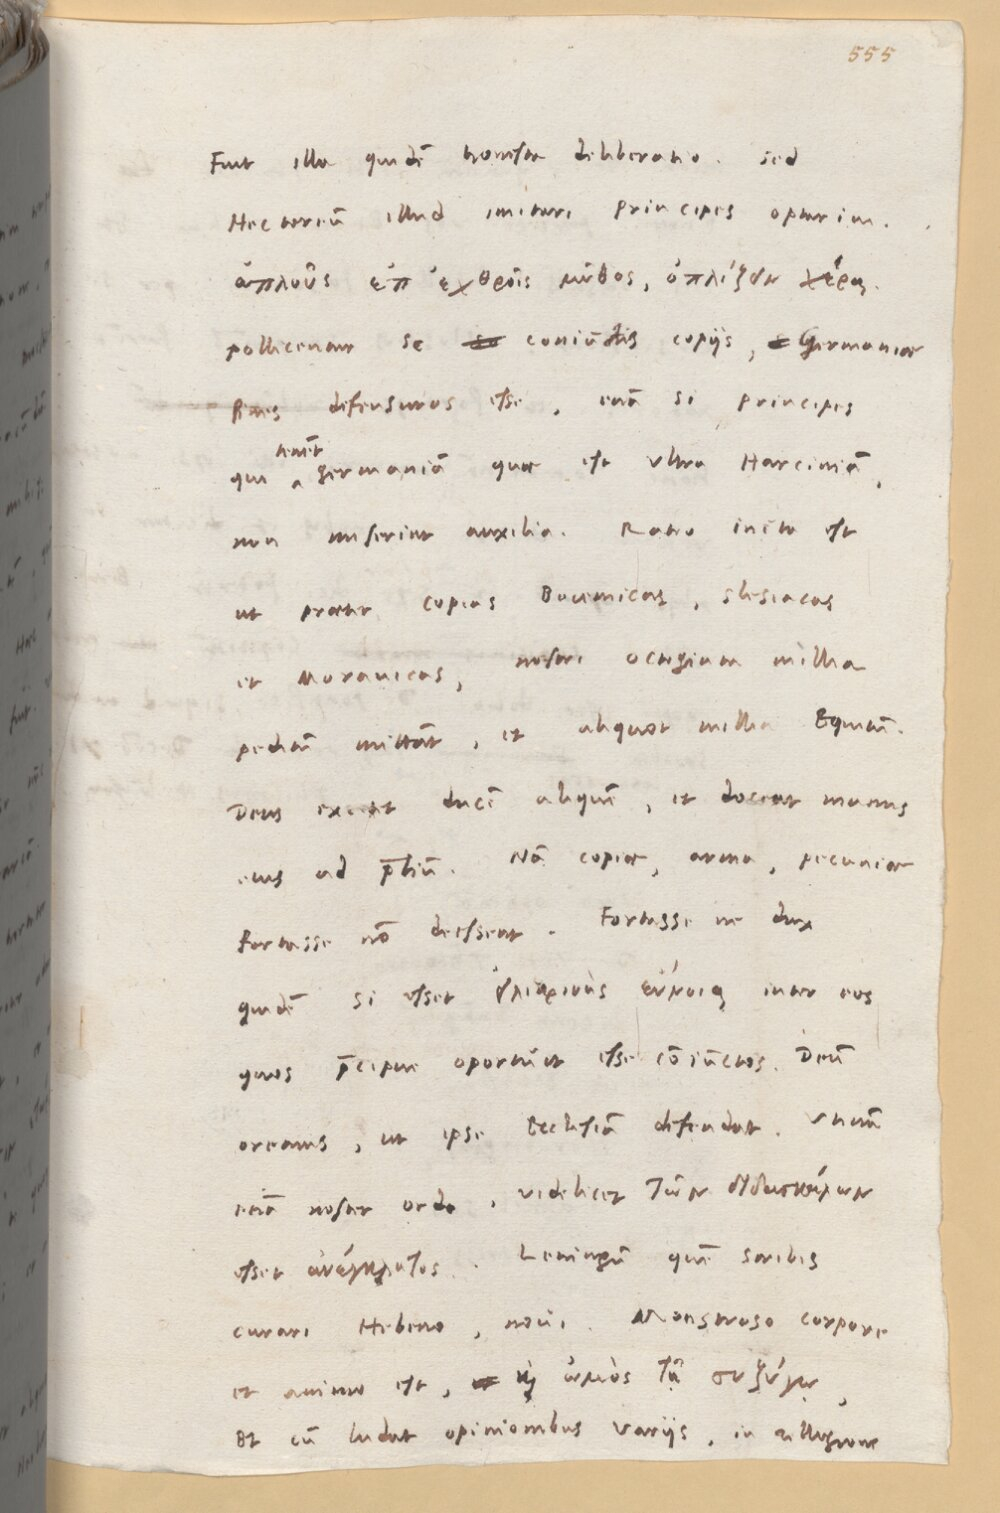 555
Fuit illa quidē honesta deliberatio. sed
Hectoreū illud imitari principes optarim.
ἁπλοῦς ἐπ' ἐχθροῖς μῦθος, ὁπλίζειν χέρας.
pollicentur se coniūctis copijs, Germaniae
fines defensuros esse, etiā si principes
tenēt
qui germaniā quae est ultra Harciniā,
non miserint auxilia. Ratio inita est
ut praeter copias Boiemicas, slesiacas
et Moravicas, nostri octoginta millia
peditū mittāt, et aliquot millia Equitū.
Deus excitet ducē aliquē, et doceat manus
eius ad p̄liū. Nā copiae, arma, pecuniae
fortasse nō deessent. Fortasse ne dux
quidē si esset εὔνοια inter eos
quos p̄cipue oportuit esse cōiūctos. Deū
oremus, ut ipse Ecclesiā defendat. Utinā
etiā noster ordo, videlicet τῶν διδασκάλων
esset ἀνέγκλητος. quē scribis
curari Hebeno, novi. Monstroso corpore
et animo est, ὠμὸς τᾷ συζύγῳ,
Et cū ludat opinionibus varijs, in